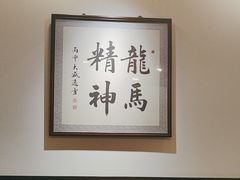 龍馬
精神
丙申大成造書